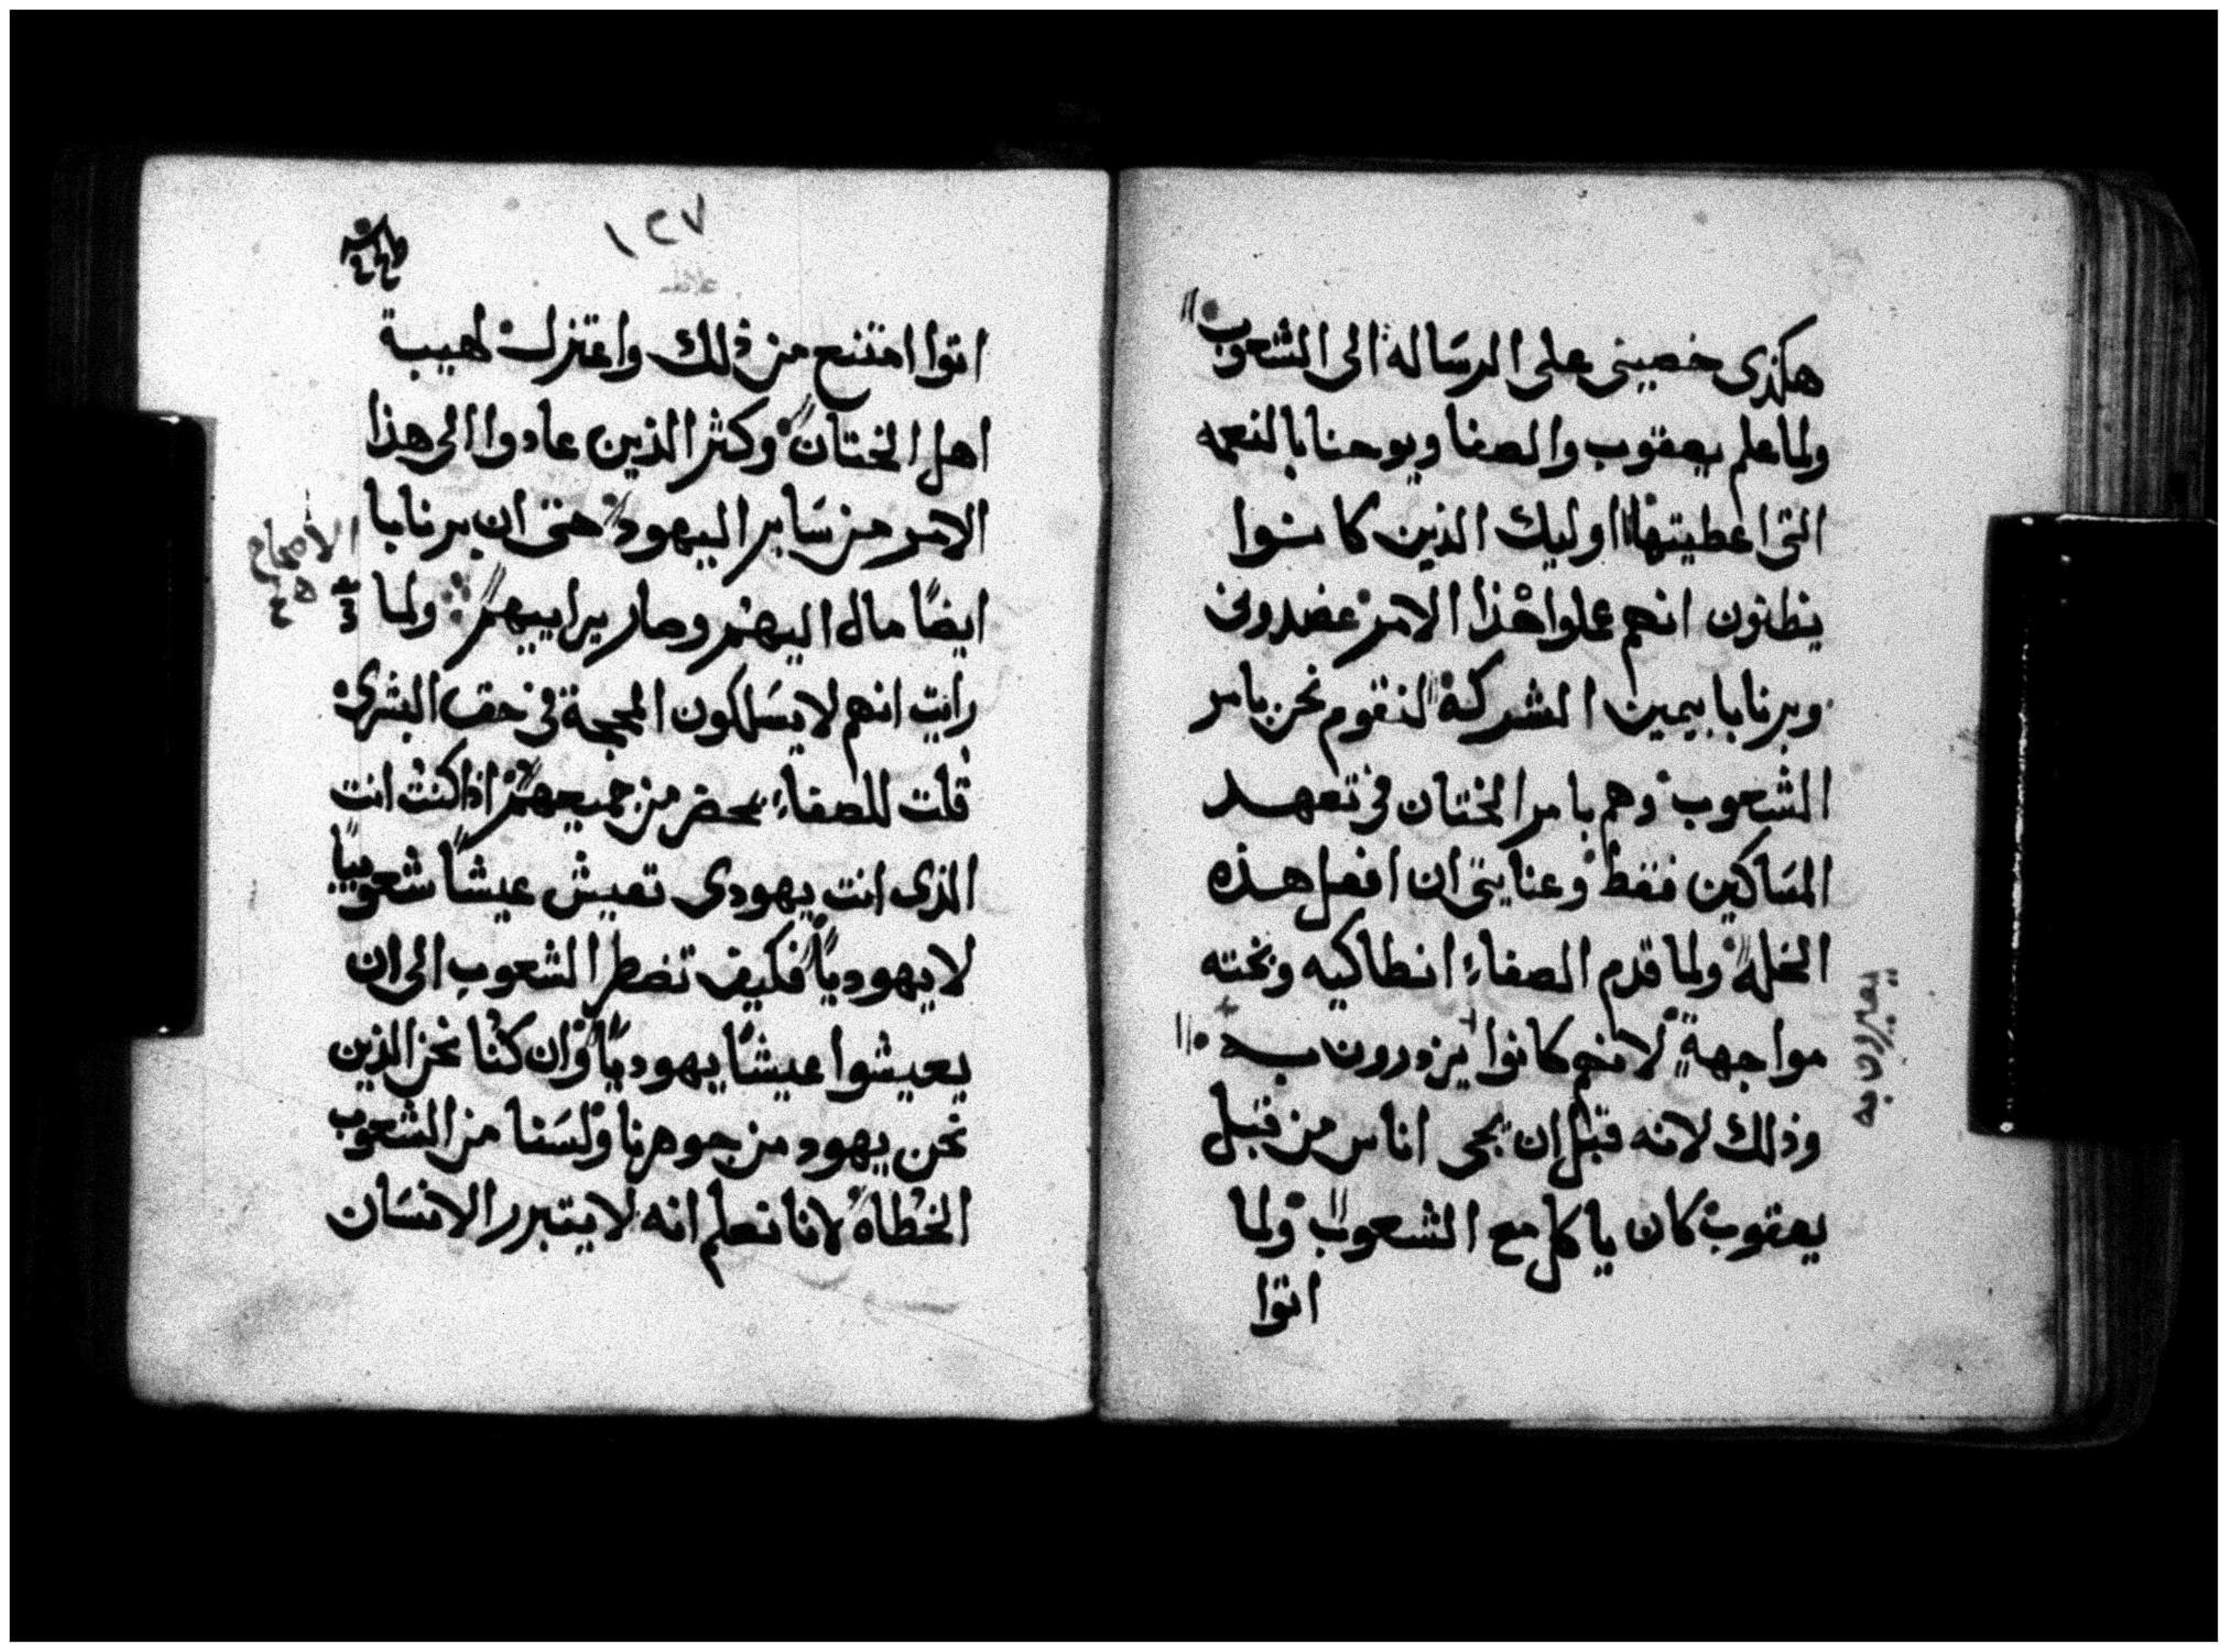 هكذى خصينى على الرسَاله الى الشعوب
ولما علم يعقوب والصفا ويوحنا بالنعمه
التى اعطيتها اوليك الذين كانوا
يظنون انهم عملوا هذا الامر عضدونى
وبرنابا بيمين الشركة لنقوم نحن بامر
الشعوب وهم بامر الختان فى تعهد
المسَاكين فقط وعنايتى ان افعل هذه
الخلة ولما قدم الصفاء انطاكيه وبخته
مواجهةٍ لانهم كانوا يزدرون به
وذلك لانه قبل ان يجى اناس من قبل
يعقوب كان ياكل مع الشعوب ولما
اتوا
يعيرون به
١٢٧
اتوا امتنع من ذلك واعتزل لهيبة
اهل الختان وكثر الذين عادوا الى هذا
الامر من سَاير اليهود حتى ان برنابا
ايضًا مال اليهم وصار يرابيهم ولما
رايت انهم لا يسَلكون المحجة فى حق البشرى
قلت للصفاء بمحضر من جميعهم اذا كنت انت
الذى انت يهودى تعيش عيشًا شعوبيًا
لا يهوديًا فكيف تضطر الشعوب الى ان
يعيشوا عيشًا يهوديًا وان كنا نحن الذين
نحن يهود من جوهرنا ولسَنا من الشعوب
الخطاه لانا نعلم انه لا يتبرر الانسَان
الاصحاح